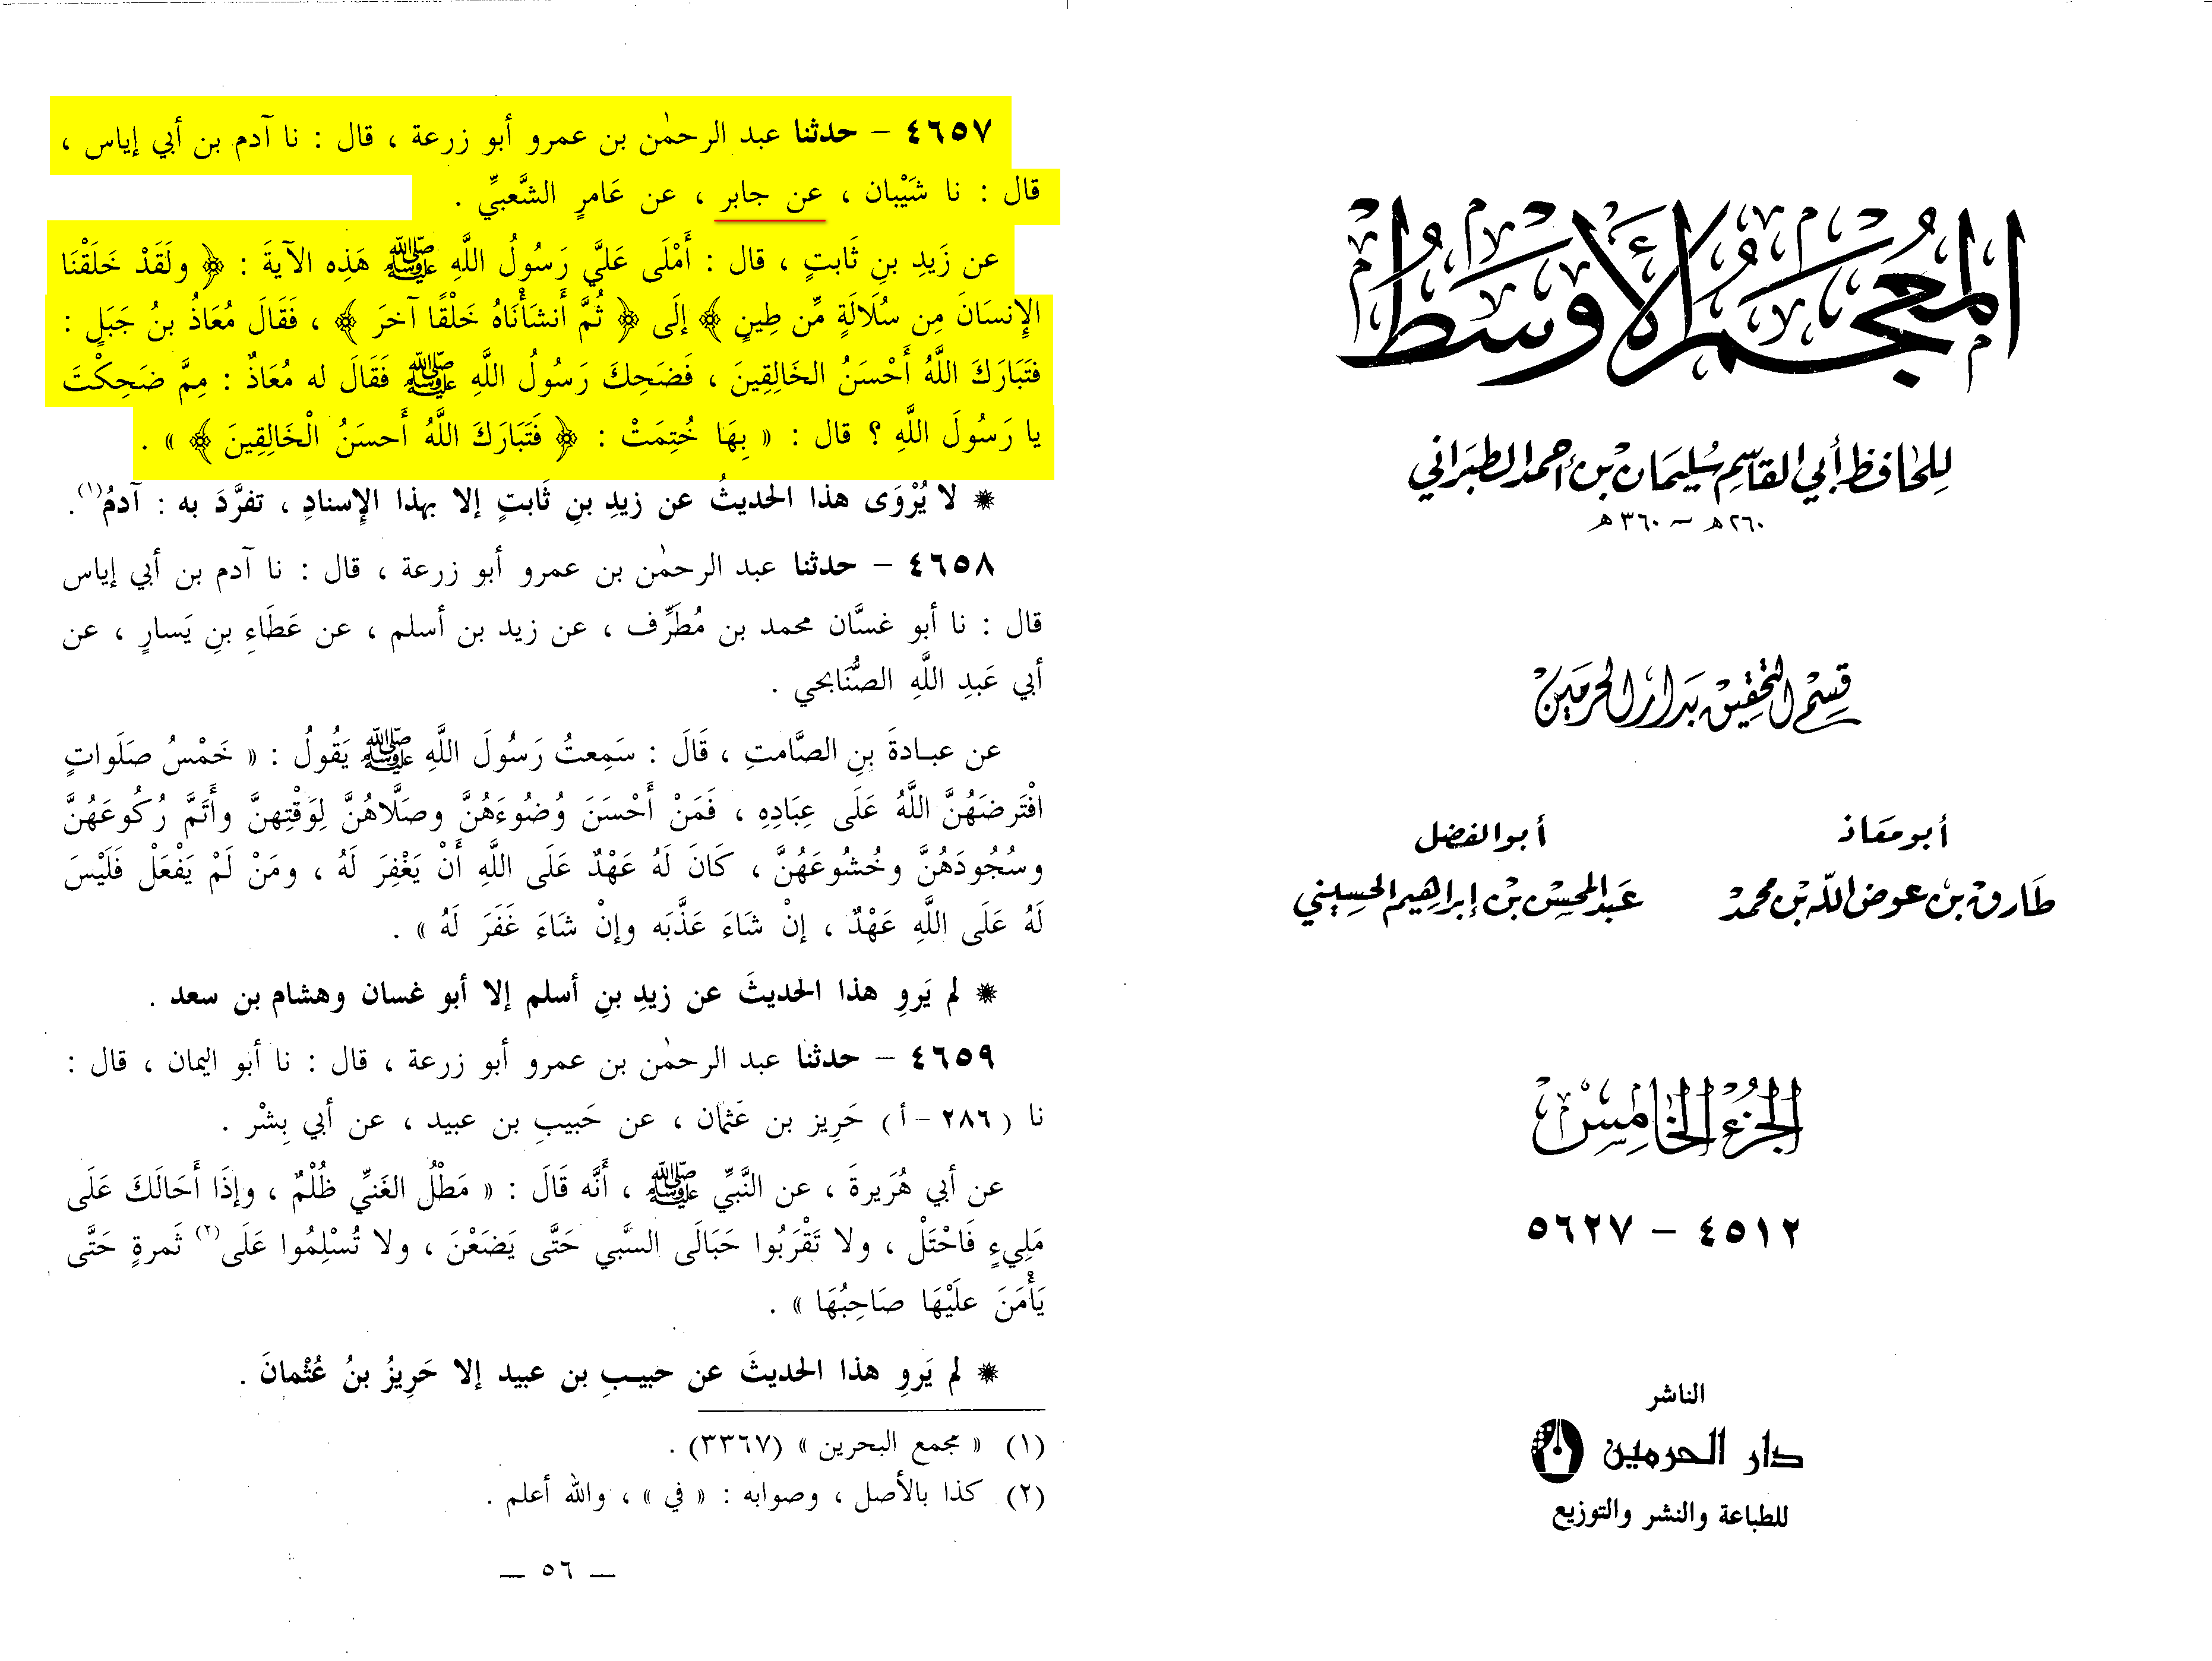 المعجم الأوسط
للحافظ أبي القاسم سليمان بن أحمد الطبراني
٢٦٠ هـ ~ ٣٦٠ هـ
قسم التحقيق بدار الحرمين
أبو معاذ
طارق بن عوض الله بن محمد
أبو الفضل
عبد المحسن بن إبراهيم الحسيني
الجزء الخامس
٤٥١٢ – ٥٦٢٧
الناشر
دار الحرمين
للطباعة والنشر والتوزيع
٤٦٥٧ – حدثنا عبد الرحمٰن بن عمرو أبو زرعة ، قال : نا آدم بن أبي إياس ،
قال : نا شَيْبان ، عن جابر ، عن عَامرٍ الشَّعبيِّ .
عن زَيدِ بنِ ثَابتٍ ، قال : أَمْلَى عَلَيَّ رَسُولُ اللَّهِ ﷺ هَذِه الآيةَ : ﴿ ولَقَدْ خَلَقْنَا
الإِنسَانَ مِن سُلَالَةٍ مِّن طِينٍ ﴾ إلَى ﴿ ثُمَّ أَنشَأْنَاهُ خَلْقًا آخرَ ﴾ ، فَقَالَ مُعَاذُ بنُ جَبَلٍ :
فتَبَارَكَ اللَّهُ أَحْسَنُ الخَالِقِينَ ، فَضَحِكَ رَسُولُ اللَّهِ ﷺ فَقَالَ له مُعَاذٌ : مِمَّ ضَحِكْتَ
يا رَسُولَ اللَّهِ ؟ قال : « بِهَا خُتِمَتْ : ﴿ فَتَبَارَكَ اللَّهُ أَحسَنُ الْخَالِقِينَ ﴾ » .
* لا يُرْوَى هذا الحديثُ عن زيدِ بنِ ثَابتٍ إلا بهذا الإسنادِ ، تفرَّدَ به : آدمُ(١).
٤٦٥٨ – حدثنا عبد الرحمٰن بن عمرو أبو زرعة ، قال : نا آدم بن أبي إياس
قال : نا أبو غسَّان محمد بن مُطَرِّف ، عن زيد بن أسلم ، عن عَطَاءِ بنِ يَسارٍ ، عن
أبي عَبدِ اللَّهِ الصُّنَابحي .
عن عبـادةَ بنِ الصَّامتِ ، قَالَ : سَمِعتُ رَسُولَ اللَّهِ ﷺ يَقُولُ : « خَمْسُ صَلَواتٍ
افْتَرضَهُنَّ اللَّهُ عَلَى عِبَادِهِ ، فَمَنْ أَحْسَنَ وُضُوءَهُنَّ وصَلَّاهُنَّ لِوَقْتِهنَّ وأَتَمَّ رُكُوعَهُنَّ
وسُجُودَهُنَّ وخُشُوعَهُنَّ ، كَانَ لَهُ عَهْدٌ عَلَى اللَّهِ أَنْ يَغْفِرَ لَهُ ، ومَنْ لَمْ يَفْعَلْ فَلَيْسَ
لَهُ عَلَى اللَّهِ عَهْدٌ ، إنْ شَاءَ عَذَّبَه وإنْ شَاءَ غَفَرَ لَهُ » .
* لم يَروِ هذا الحديثَ عن زيدِ بنِ أسلم إلا أبو غسان وهشام بن سعد .
٤٦٥٩ – حدثنا عبد الرحمٰن بن عمرو أبو زرعة ، قال : نا أبو اليمان ، قال :
نا ( ٢٨٦ – أ ) حَرِيز بن عَثمان ، عن حَبيبِ بن عبيد ، عن أبي بِشْر .
عن أبي هُرَيرةَ ، عن النَّبيِّ ﷺ ، أَنَّه قَالَ : « مَطْلُ الغَنيِّ ظُلْمٌ ، وإذَا أَحَالَكَ عَلَى
مَلِيءٍ فَاحْتَلْ ، ولا تَقْرَبُوا حَبَالَى السَّبي حَتَّى يَضَعْنَ ، ولا تُسْلِمُوا عَلَى(٢) ثَمرةٍ حَتَّى
يَأْمَنَ علَيْهَا صَاحِبُهَا » .
* لم يَروِ هذا الحديثَ عن حبيـبِ بن عبيد إلا حَرِيزُ بنُ عُثْمانَ .
(١) « مجمع البحرين » (٣٣٦٧) .
(٢) كذا بالأصل ، وصوابه : « في » ، والله أعلم .
— ٥٦ —